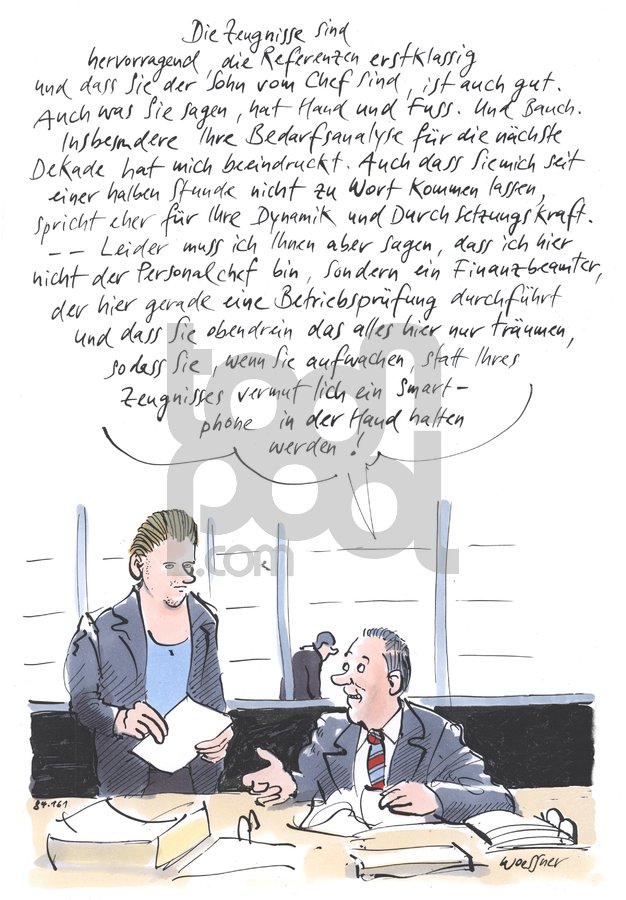 Die Zeugnisse sind
hervorragend, die Referenzen erstklassig
und dass Sie der Sohn vom Chef sind, ist auch gut.
Auch was Sie sagen, hat Hand und Fuss. Und Bauch.
Insbesondere Ihre Bedarfsanalyse für die nächste
Dekade hat mich beeindruckt. Auch dass Sie mich seit
einer halben Stunde nicht zu Wort kommen lassen,
spricht eher für Ihre Dynamik und Durchsetzungskraft.
-- Leider muss ich Ihnen aber sagen, dass ich hier
nicht der Personalchef bin, sondern ein Finanzbeamter,
der hier gerade eine Betriebsprüfung durchführt
und dass Sie obendrein das alles hier nur träumen,
sodass Sie, wenn Sie aufwachen, statt Ihres
Zeugnisses vermutlich ein Smart-
phone in der Hand halten
werden!
toon
pool
.com
84.161
Woessner